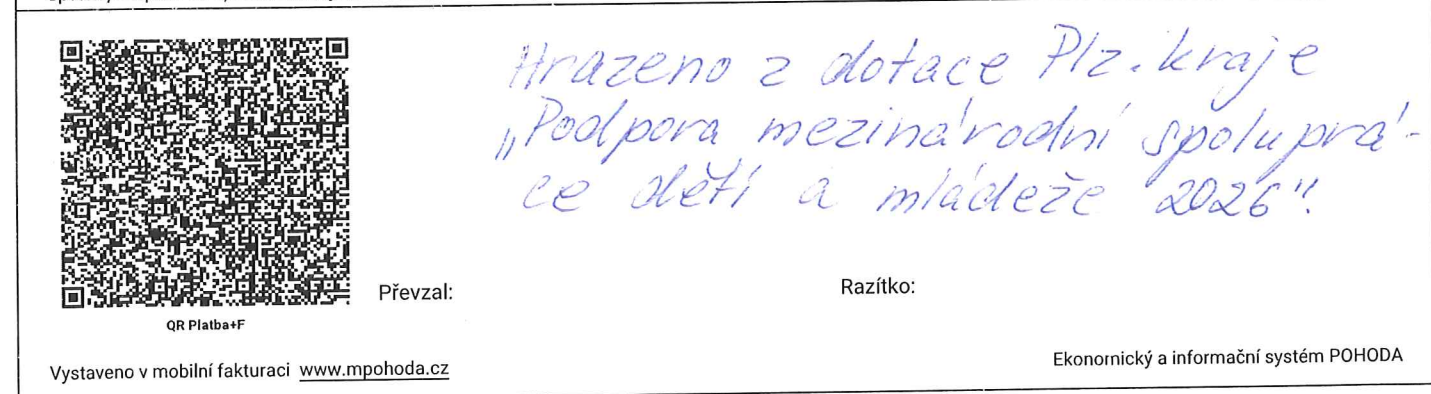 Hrazeno z dotace Plz. kraje
„Podpora mezinárodní spoluprá-
ce dětí a mládeže 2026".
Převzal:
Razítko:
QR Platba+F
Vystaveno v mobilní fakturaci www.mpohoda.cz
Ekonomický a informační systém POHODA